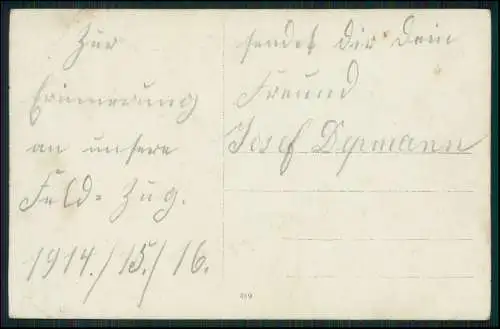 Zur
Erinnerung
an unsere
Feld=Zug.
1914./15./16.
sendet dir Dein
Freund
Josef Depmann
419